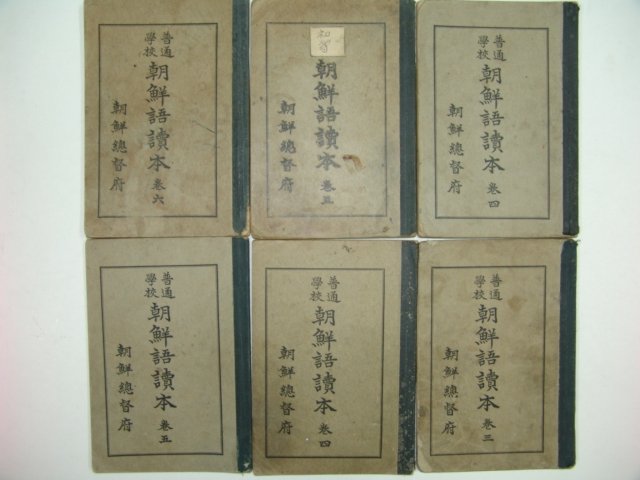 普通
學校
朝鮮語讀本 卷六
朝鮮總督府
朝鮮語讀本 卷五
朝鮮總督府
普通
學校
朝鮮語讀本 卷四
朝鮮總督府
普通
學校
朝鮮語讀本 卷五
朝鮮總督府
普通
學校
朝鮮語讀本 卷四
朝鮮總督府
普通
學校
朝鮮語讀本 卷三
朝鮮總督府